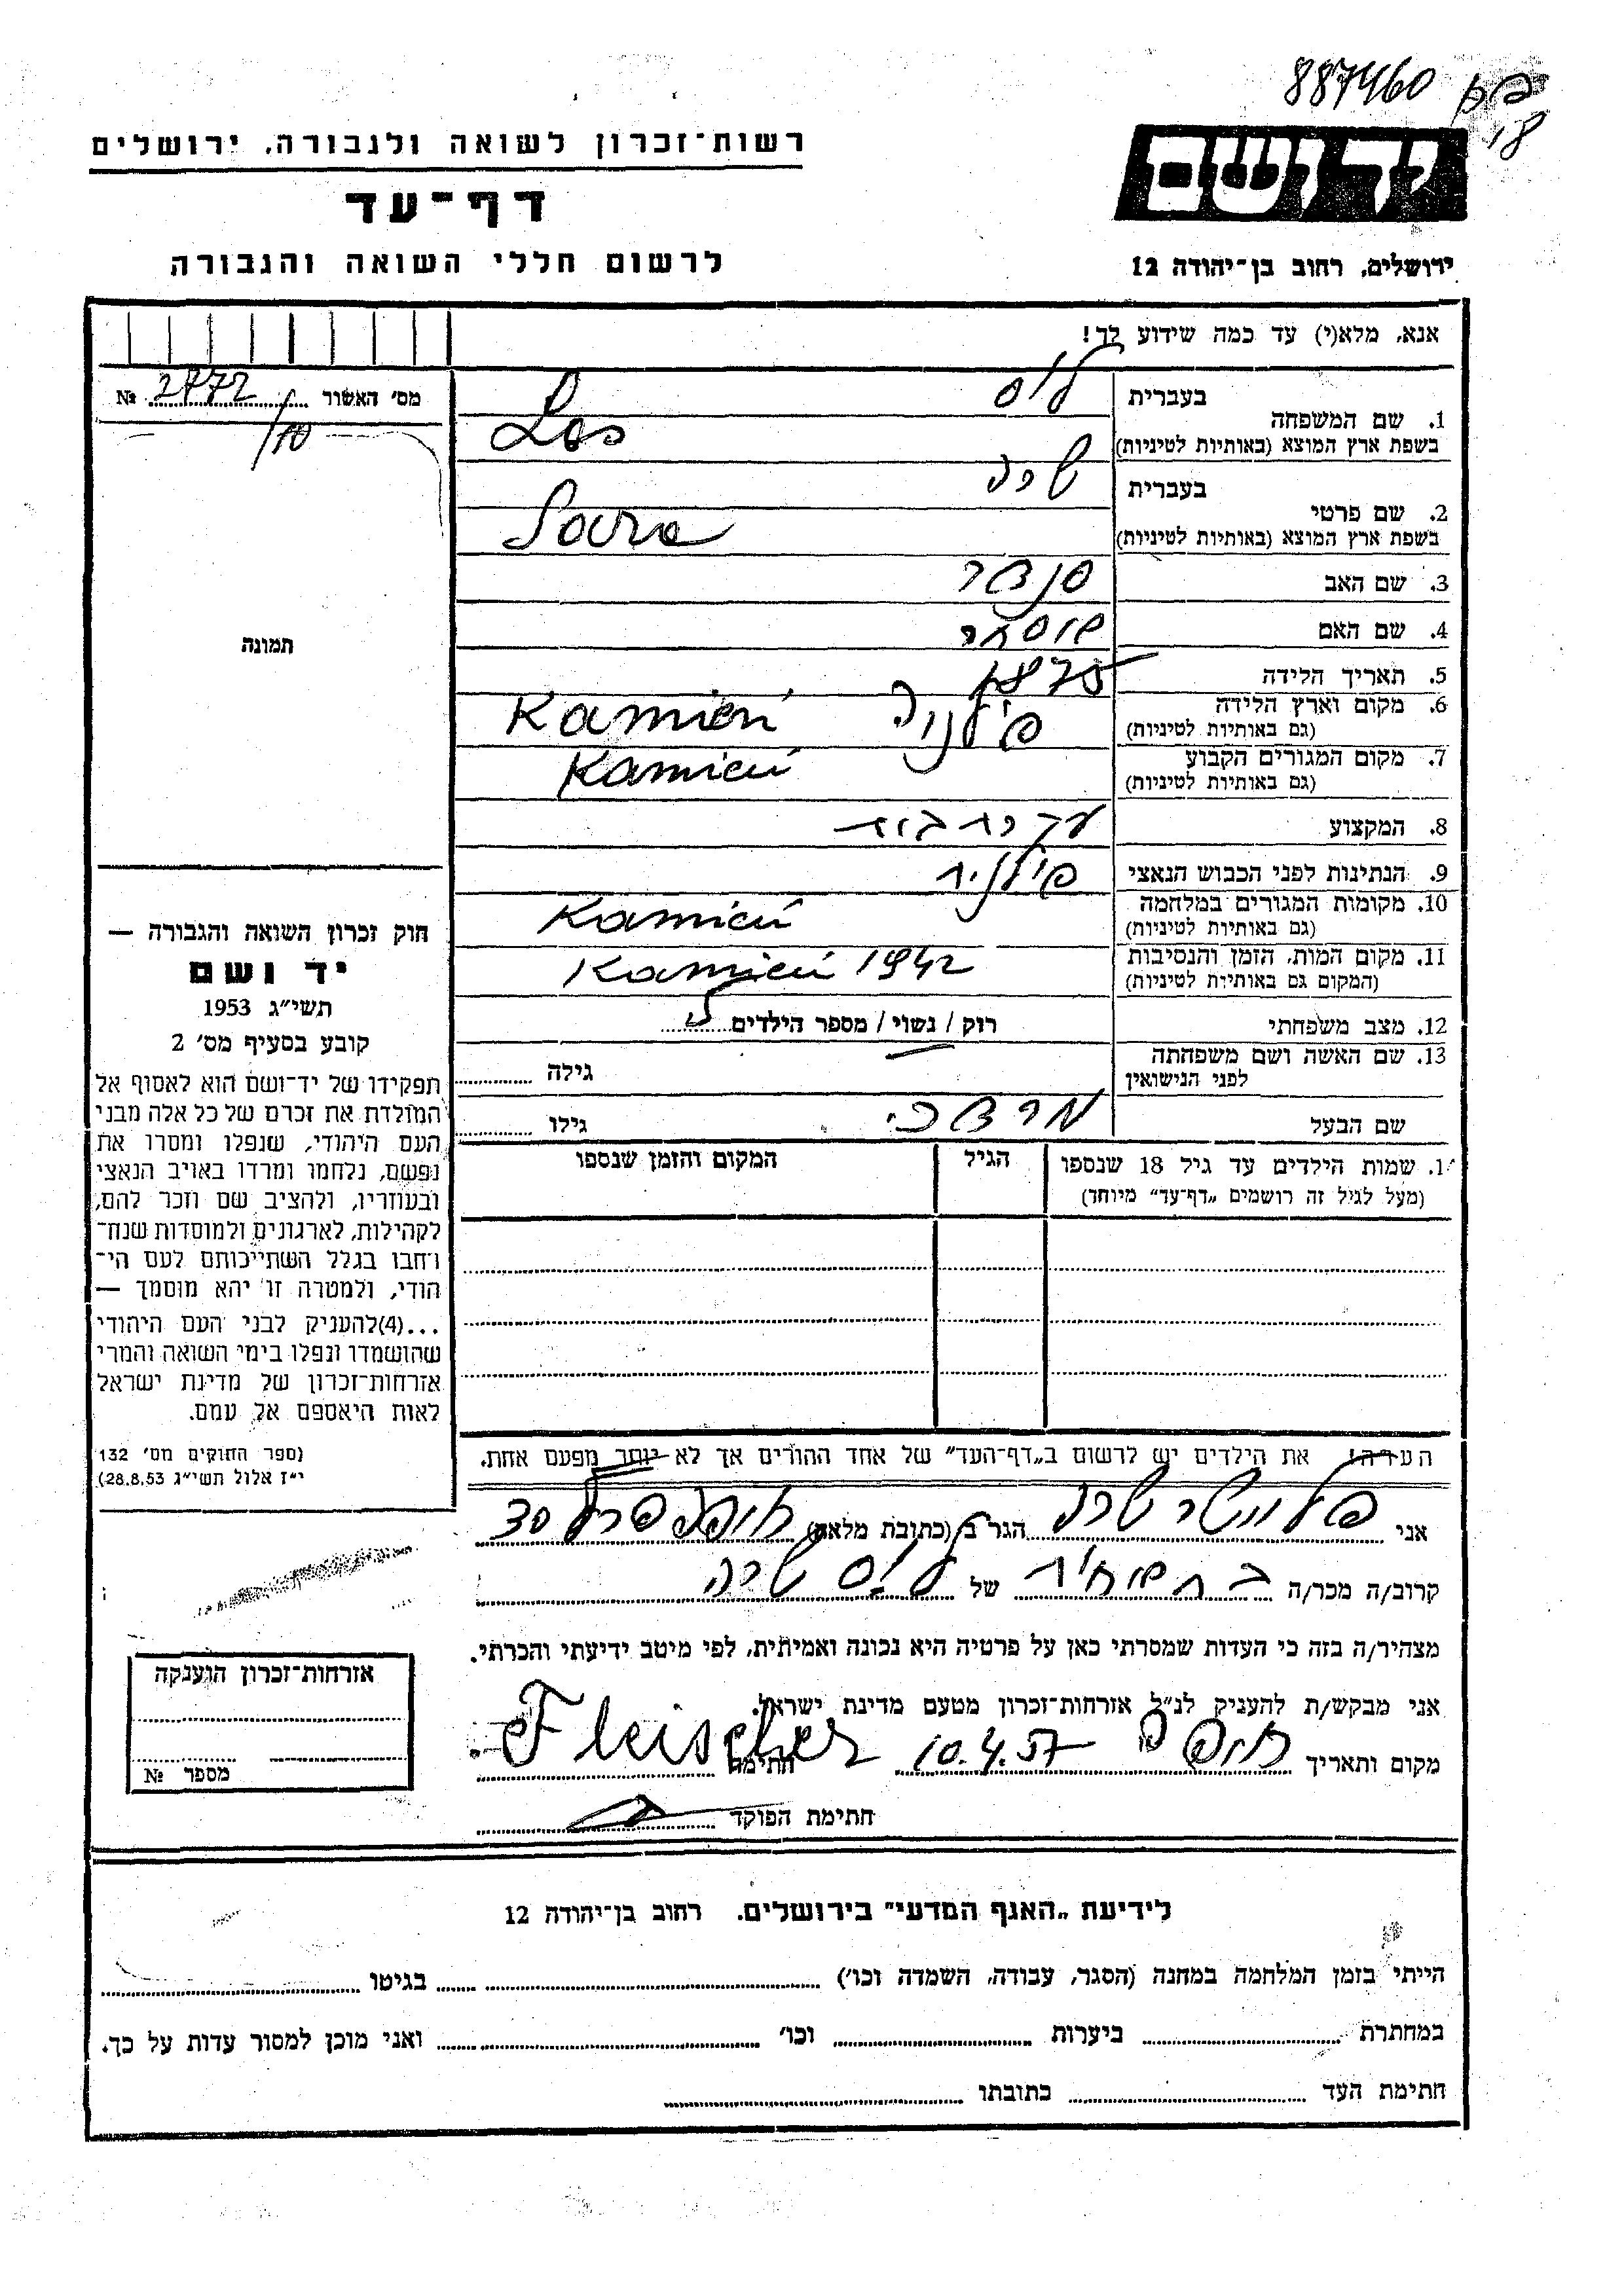 887460
18
רשות־זכרון לשואה ולגבורה. ירושלים
יד ושם
דף־עד
ירושלים, רחוב בן־יהודה 12
לרשום חללי השואה והגבורה
אנא, מלא(י) עד כמה שידוע לך!
מס׳ האשור № 2772
/10
1. שם המשפחה
בעברית
בשפת ארץ המוצא (באותיות לטיניות) Los
2. שם פרטי
בעברית שרה
בשפת ארץ המוצא (באותיות לטיניות) Sara
3. שם האב סנדר
4. שם האם
5. תאריך הלידה 1875
6. מקום וארץ הלידה פולניה Kamień
(גם באותיות לטיניות)
7. מקום המגורים הקבוע Kamień
(גם באותיות לטיניות)
8. המקצוע עקרת בית
9. הנתינות לפני הכבוש הנאצי פולנית
10. מקומות המגורים במלחמה Kamień
(גם באותיות לטיניות)
11. מקום המות, הזמן והנסיבות Kamień 1942
(המקום גם באותיות לטיניות)
12. מצב משפחתי רווק / נשוי / מספר הילדים
13. שם האשה ושם משפחתה גילה
לפני הנישואין
שם הבעל מרדכי גילו
תמונה
1. שמות הילדים עד גיל 18 שנספו הגיל המקום והזמן שנספו
(מעל לגיל זה רושמים „דף־עד״ מיוחד)
חוק זכרון השואה והגבורה —
יד ושם
תשי״ג 1953
קובע בסעיף מס׳ 2
תפקידו של יד־ושם הוא לאסוף אל
המולדת את זכרם של כל אלה מבני
העם היהודי, שנפלו ומסרו את
נפשם, נלחמו ומרדו באויב הנאצי
ובעוזריו, ולהציב שם וזכר להם,
לקהילות, לארגונים ולמוסדות שנח־
רבו בגלל השתייכותם לעם הי־
הודי, ולמטרה זו יהא מוסמך —
...(4)להעניק לבני העם היהודי
שהושמדו ונפלו בימי השואה והמרי
אזרחות־זכרון של מדינת ישראל
לאות היאספם אל עמם.
(ספר החוקים מס׳ 132
י״ז אלול תשי״ג 28.8.53)
הערה! את הילדים יש לרשום ב„דף־העד״ של אחד ההורים אך לא יותר מפעם אחת.
אני פליישר שרה הגר ב (כתובת מלאה) חיפה 30
קרוב/ה מכר/ה של לוס שרה
מצהיר/ה בזה כי העדות שמסרתי כאן על פרטיה היא נכונה ואמיתית, לפי מיטב ידיעתי והכרתי.
אני מבקש/ת להעניק לנ״ל אזרחות־זכרון מטעם מדינת ישראל.
מקום ותאריך חיפה 10.4.57 חתימה Fleischer
חתימת הפוקד
אזרחות־זכרון הוענקה
מספר №
לידיעת „האגף המדעי״ בירושלים. רחוב בן־יהודה 12
הייתי בזמן המלחמה במחנה (הסגר, עבודה, השמדה וכו׳) בגיטו
במחתרת ביערות וכו׳ ואני מוכן למסור עדות על כך.
חתימת העד כתובתו